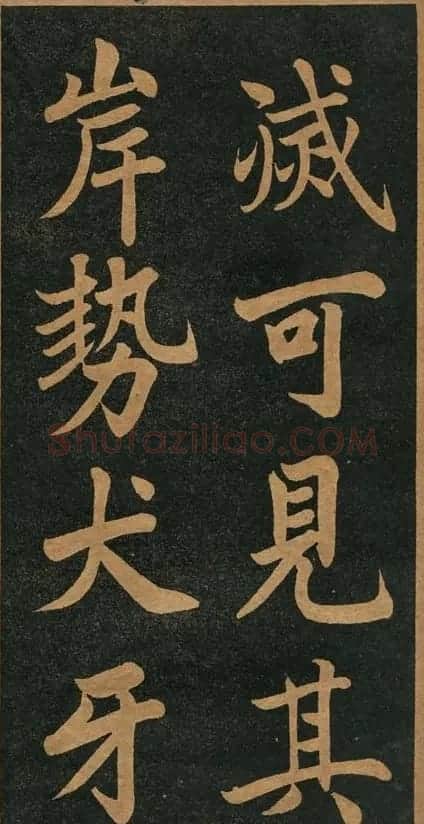 滅可見其
岸勢犬牙
Shufaziliao.COM